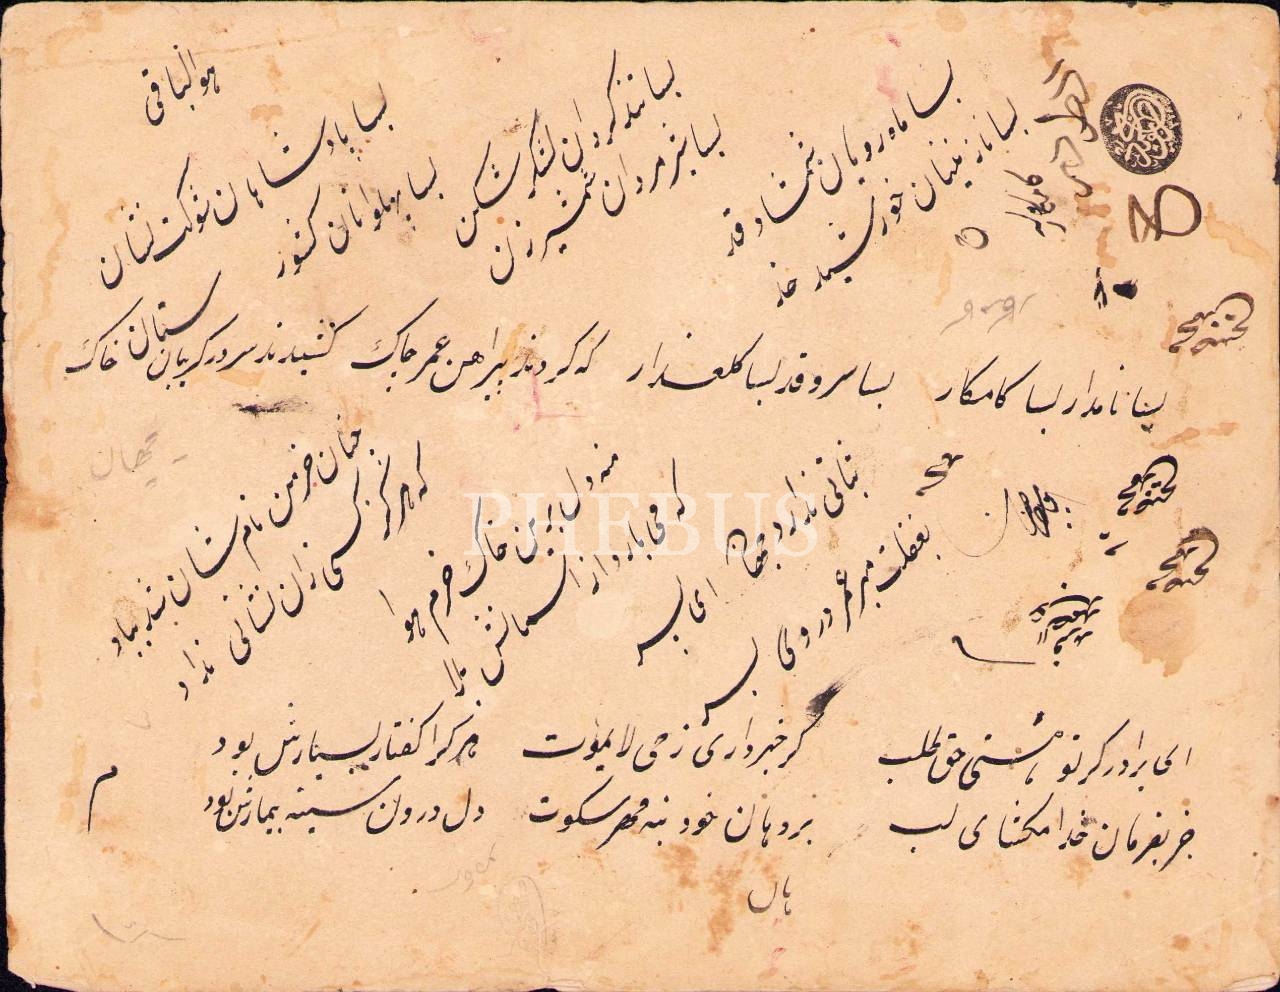 هوالباقی
بسا پادشاهان شوکت نشان
بسا پهلوانان کشور ستان
بسا تند گردان لشکر شکن
بسا شیر مردان شمشیر زن
بسا ماه رویان شمشاد قد
بسا نازنینان خورشید خد
بسا نامدار بسا کامکار
بسا سرو قد بسا کلعذار
که کردند پیراهن عمر چاک
کشیدند سر در کریبان خاک
چنان خرمن نام شان شد بباد
که هرگز کسی زان نشانی نداد
منه دل برین خاک خرم هوا
که می بارد از آسمانش بلا
ثباتی ندارد جهان ای پسر
بغفلت مبر عمر در وی بسر
ای برادر کر تو هستی حق طلب
جز بفرمان خدا مکشای لب
کر خبر داری ز حی لایموت
بر دهان خود بنه مهر سکوت
هر کرا کفتار بسیارش بود
دل درون سینه بیمارش بود
م
PHEBUS